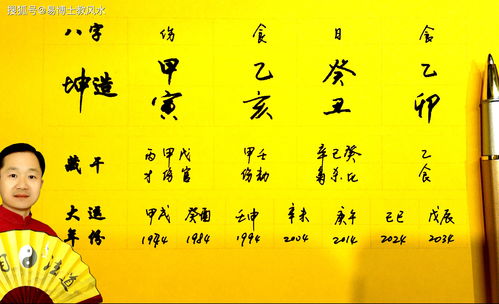 搜狐号@易博士救风水
八字 伤 食 日 食
坤造 甲 乙 癸 乙
寅 亥 丑 卯
藏干 丙甲戊 甲壬 辛己癸 乙
才伤官 伤劫 杀比 食
大运 甲戌 癸酉 壬申 辛未 庚午 己巳 戊辰
年份 1974 1984 1994 2004 2014 2024 2034